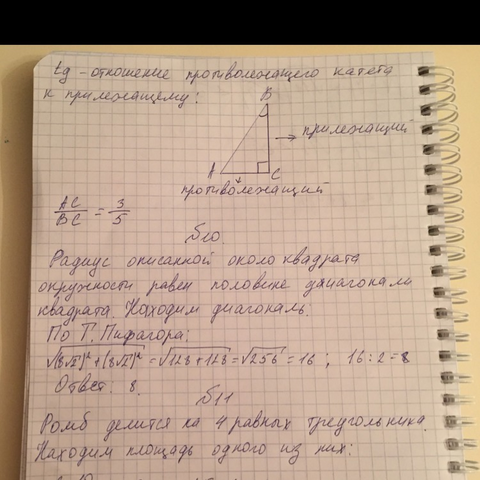 tg - отношение противолежащего катета
к прилежащему:
B
→ прилежащий
A
C
противолежащий
AC/BC = 3/5
№10.
Радиус описанной около квадрата
окружности равен половине диагонали
квадрата. Находим диагональ:
По Т. Пифагора:
√(8√2)²+(8√2)² = √128+128 = √256 = 16 ; 16:2=8
Ответ: 8.
№11
Ромб делится на 4 равных треугольника.
Находим площадь одного из них: